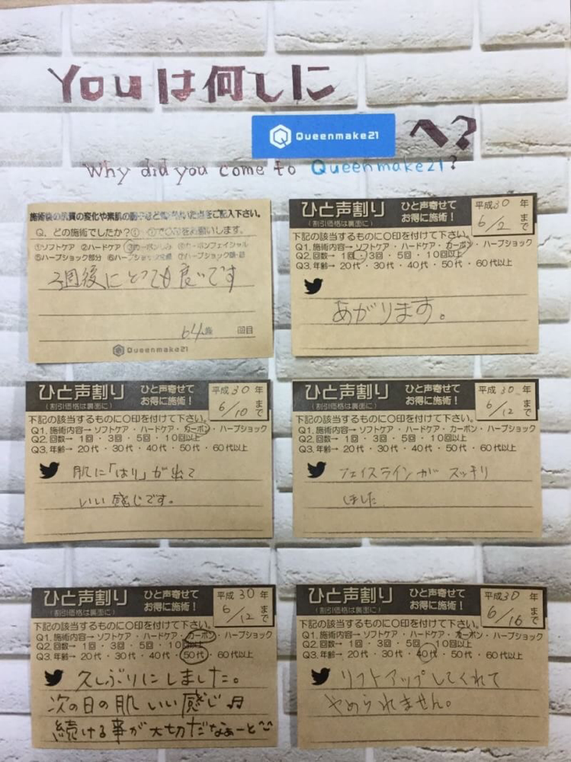 Youは何しに
Queenmake21 へ?
Why did you come to Queenmake21?
施術後の肌質の変化や素肌の調子など気付いた点をご記入下さい。
Q. どの施術でしたか?
①ソフトケア ②ハードケア
2週後にとても良いです
64歳 回目
Queenmake21
ひと声割り ひと声寄せてお得に施術!
(割引価格は裏面に)
平成30年
6/2まで
下記の該当するものに○印を付けて下さい。
Q1. 施術内容→ ソフトケア・ハードケア・カーボン・ハーブショック
Q2. 回数→ 1回・3回・5回・10回以上
Q3. 年齢→ 20代・30代・40代・50代・60代以上
あがります。
ひと声割り ひと声寄せてお得に施術!
(割引価格は裏面に)
平成30年
6/10まで
下記の該当するものに○印を付けて下さい。
Q1. 施術内容→ ソフトケア・ハードケア・カーボン・ハーブショック
Q2. 回数→ 1回・3回・5回・10回以上
Q3. 年齢→ 20代・30代・40代・50代・60代以上
肌に「はり」が出て
いい感じです。
ひと声割り ひと声寄せてお得に施術!
(割引価格は裏面に)
平成30年
6/12まで
下記の該当するものに○印を付けて下さい。
Q1. 施術内容→ ソフトケア・ハードケア・カーボン・ハーブショック
Q2. 回数→ 1回・3回・5回・10回以上
Q3. 年齢→ 20代・30代・40代・50代・60代以上
フェイスラインがスッキリ
しました
ひと声割り ひと声寄せてお得に施術!
(割引価格は裏面に)
平成30年
6/12まで
下記の該当するものに○印を付けて下さい。
Q1. 施術内容→ ソフトケア・ハードケア・カーボン・ハーブショック
Q2. 回数→ 1回・3回・5回・10回以上
Q3. 年齢→ 20代・30代・40代・50代・60代以上
久しぶりにしました。
次の日の肌いい感じ♫
続ける事が大切だなぁーと
ひと声割り ひと声寄せてお得に施術!
(割引価格は裏面に)
平成30年
6/16まで
下記の該当するものに○印を付けて下さい。
Q1. 施術内容→ ソフトケア・ハードケア・カーボン・ハーブショック
Q2. 回数→ 1回・3回・5回・10回以上
Q3. 年齢→ 20代・30代・40代・50代・60代以上
リフトアップしてくれて
やめられません。